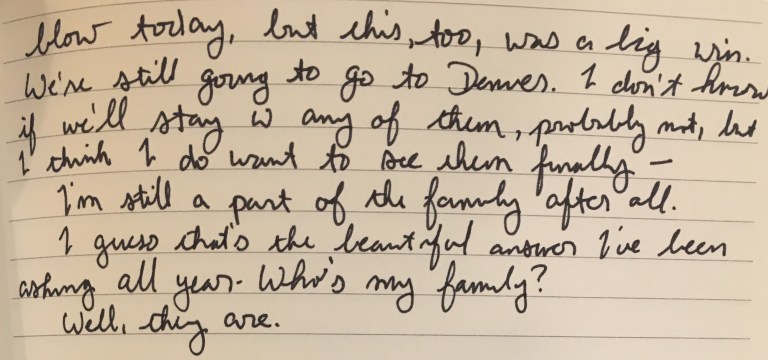 blow today, but this, too, was a big win.
We're still going to go to Denver. I don't know
if we'll stay w any of them, probably not, but
I think I do want to see them finally —
I'm still a part of the family after all.
I guess that's the beautiful answer I've been
asking all year. Who's my family?
Well, they are.